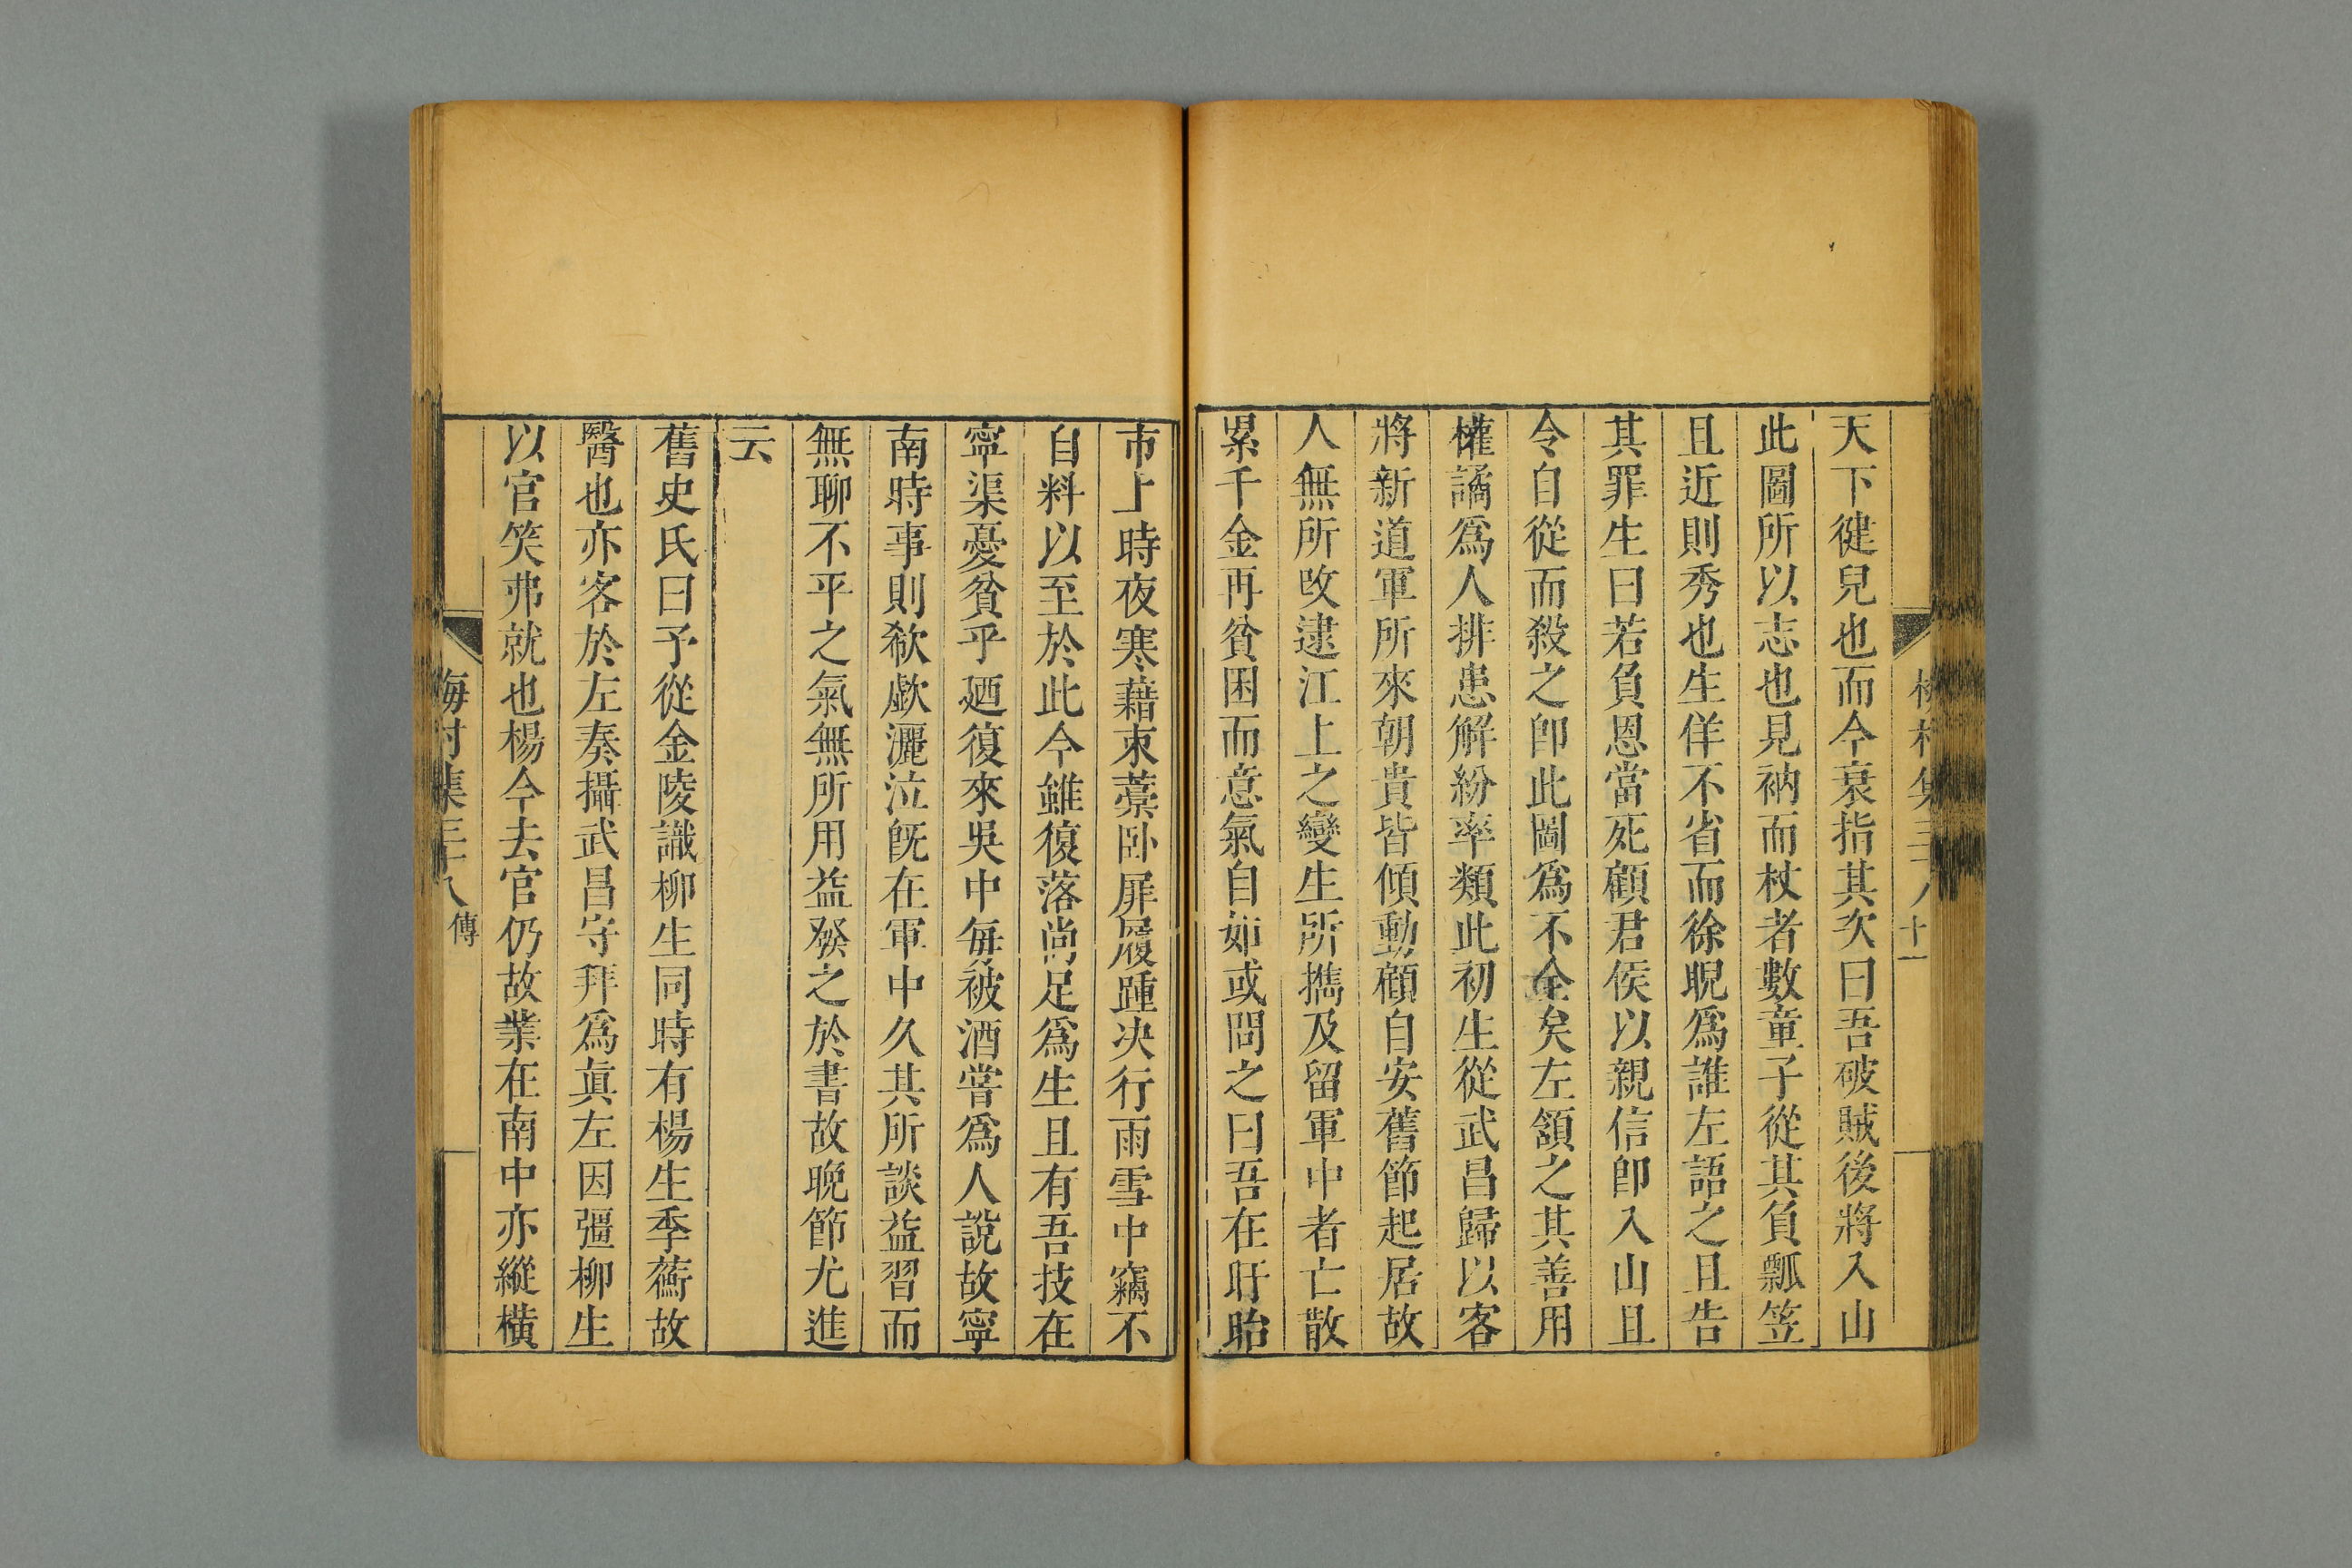 天下徤兒也而今衰指其次曰吾破賊後將入山
此圖所以志也見衲而杖者數童子從其負瓢笠
且近則秀也生佯不省而徐睨爲誰左語之且告
其罪生曰若負恩當死顧君侯以親信卽入山且
令自從而殺之卽此圖爲不全矣左頷之其善用
權譎爲人排患解紛率類此初生從武昌歸以客
將新道軍所來朝貴皆傾動顧自安舊節起居故
人無所改逮江上之變生所擕及留軍中者亡散
累千金再貧困而意氣自如或問之曰吾在盱眙
市上時夜寒藉束藁卧屝履踵决行雨雪中竊不
自料以至於此今雖復落尚足爲生且有吾技在
寧渠憂貧乎廼復來吳中每被酒嘗爲人說故寧
南時事則欷歔灑泣旣在軍中久其所談益習而
無聊不平之氣無所用益發之於書故晚節尤進
云
舊史氏曰予從金陵識柳生同時有楊生季蘅故
醫也亦客於左奏攝武昌守拜爲眞左因彊柳生
以官笑弗就也楊今去官仍故業在南中亦縱橫
梅村集三十八 傳
十一